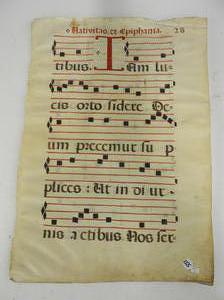 Nativitas, et Epiphania. 28
tibus. Iam lu-
cis orto sidere De-
um precemur su p
plices: Ut in di ur-
nis actibus Nos ser